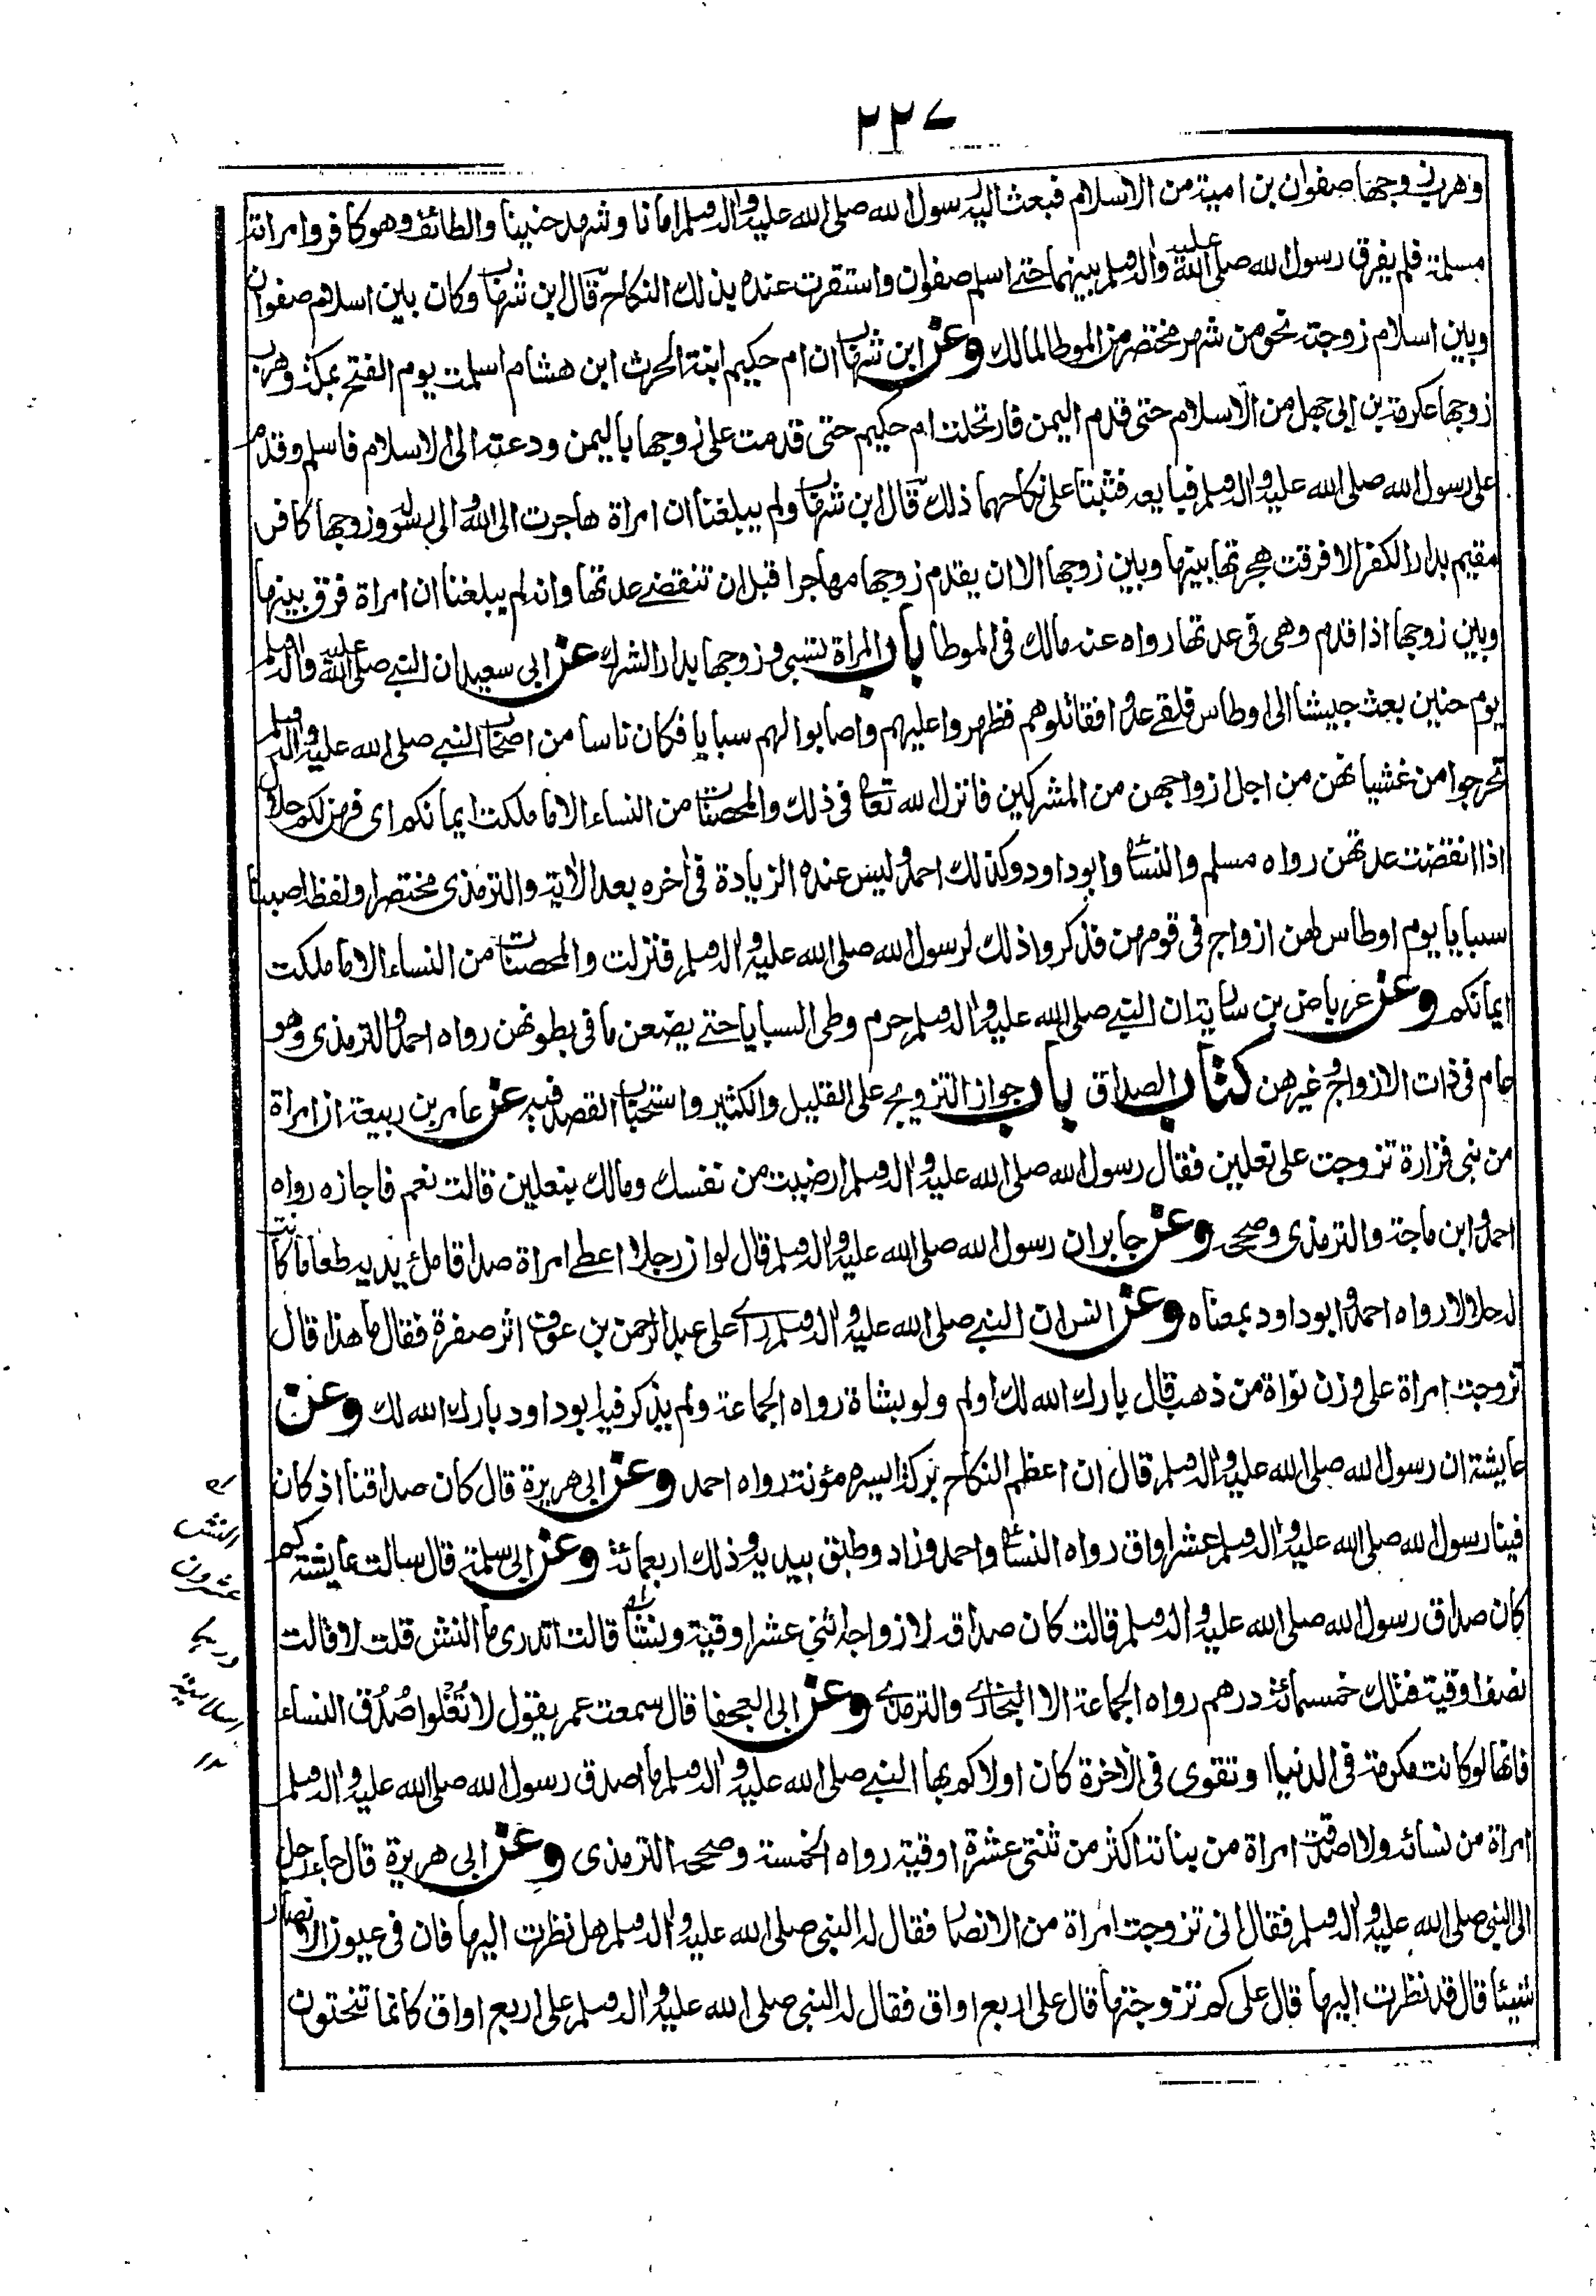 ٢٢٧
وهرب زوجها صفوان بن امية من الاسلام فبعث اليه رسول الله صلى الله عليه واله وسلم امانا وشهد حنينا والطائف وهو كافر وامراته
مسلمة فلم يفرق رسول الله صلى الله عليه واله وسلم بينهما حتى اسلم صفوان واستقرت عنده بذلك النكاح قال ابن شهاب وكان بين اسلام صفوان
وبين اسلام زوجته نحو من شهر مختصر من الموطا لمالك وعن ابن شهاب ان ام حكيم ابنة الحرث ابن هشام اسلمت يوم الفتح بمكة وهرب
زوجها عكرمة بن ابي جهل من الاسلام حتى قدم اليمن فارتحلت ام حكيم حتى قدمت على زوجها باليمن ودعته الى الاسلام فاسلم وقدم
على رسول الله صلى الله عليه واله وسلم فبايعه فثبتا على نكاحهما ذلك قال ابن شهاب ولم يبلغنا ان امراة هاجرت الى الله والى رسوله وزوجها كافر
مقيم بدار الكفر الا فرقت هجرتها بينها وبين زوجها الا ان يقدم زوجها مهاجرا قبل ان تنقضي عدتها وانه لم يبلغنا ان امراة فرق بينها
وبين زوجها اذا قدم وهى فى عدتها رواه عنه مالك فى الموطا باب المراة تسبى وزوجها بدار الشرك عن ابى سعيد ان النبي صلى الله عليه واله وسلم
يوم حنين بعث جيشا الى اوطاس فلقي عدوا فقاتلوهم فظهروا عليهم واصابوا لهم سبايا فكان ناسا من اصحاب النبي صلى الله عليه واله وسلم
تحرجوا من غشيانهن من اجل ازواجهن من المشركين فانزل الله تعالى فى ذلك والمحصنات من النساء الا ما ملكت ايمانكم اى فهن لكم حلال
اذا انقضت عدتهن رواه مسلم والنسائى وابو داود وكذلك احمد وليس عنده الزيادة فى اخره بعد الاية والترمذى مختصرا ولفظه اصبنا
سبايا يوم اوطاس لهن ازواج فى قومهن فذكروا ذلك لرسول الله صلى الله عليه واله وسلم فنزلت والمحصنات من النساء الا ما ملكت
ايمانكم وعن عرباض بن سارية ان النبي صلى الله عليه واله وسلم حرم وطى السبايا حتى يضعن ما فى بطونهن رواه احمد والترمذى وهو
عام فى ذات الازواج وغيرهن كتاب الصداق باب جواز التزويج على القليل والكثير واستحباب القصد فيه عن عامر بن ربيعة ان امراة
من بنى فزارة تزوجت على نعلين فقال رسول الله صلى الله عليه واله وسلم ارضيت من نفسك ومالك بنعلين قالت نعم فاجازه رواه
احمد وابن ماجة والترمذى وصححه وعن جابر ان رسول الله صلى الله عليه واله وسلم قال لو ان رجلا اعطى امراة صداقا ملئ يديه طعاما كانت
له حلالا رواه احمد وابو داود بمعناه وعن انس ان النبي صلى الله عليه واله وسلم راى على عبد الرحمن بن عوف اثر صفرة فقال ما هذا قال
تزوجت امراة على وزن نواة من ذهب قال بارك الله لك اولم ولو بشاة رواه الجماعة ولم يذكر فيه ابو داود بارك الله لك وعن
عايشة ان رسول الله صلى الله عليه واله وسلم قال ان اعظم النكاح بركة ايسره مؤنة رواه احمد وعن ابى هريرة قال كان صداقنا اذ كان
فينا رسول الله صلى الله عليه واله وسلم عشر اواق رواه النسائى واحمد وزاد وطبق بيديه وذلك اربعمائة وعن ابى سلمة قال سالت عايشة كم
كان صداق رسول الله صلى الله عليه واله وسلم قالت كان صداقه لازواجه اثنى عشر اوقية ونشا قالت اتدرى ما النش قلت لا قالت
نصف اوقية فتلك خمسمائة درهم رواه الجماعة الا البخارى والترمذى وعن ابى العجفا قال سمعت عمر يقول لا تُغْلوا صُدُق النساء
فانها لو كانت مكرمة فى الدنيا او تقوى فى الاخرة كان اولاكم بها النبي صلى الله عليه واله وسلم ما اصدق رسول الله صلى الله عليه واله وسلم
امراة من نسائه ولا اصدقت امراة من بناته اكثر من ثنتى عشرة اوقية رواه الخمسة وصححه الترمذى وعن ابى هريرة قال جاء رجل
الى النبى صلى الله عليه واله وسلم فقال انى تزوجت امراة من الانصار فقال له النبى صلى الله عليه واله وسلم هل نظرت اليها فان فى عيون الانصار
شيئا قال قد نظرت اليها قال على كم تزوجتها قال على اربع اواق فقال له النبى صلى الله عليه واله وسلم على اربع اواق كانما تنحتون
النش
عشرون